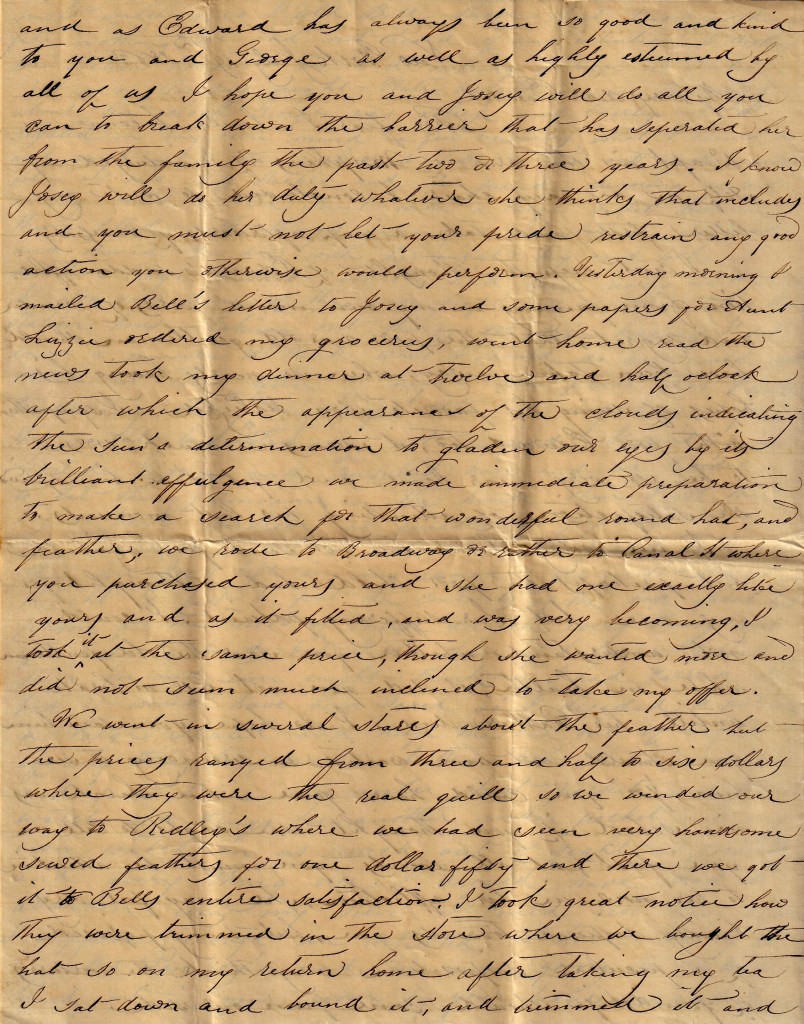 and as Edward has always been so good and kind
to you and George as well as highly esteemed by
all of us I hope you and Josey will do all you
can to break down the barrier that has seperated her
from the family the past two or three years. I know
Josey will do her duty whatever she thinks that includes
and you must not let your pride restrain any good
action you otherwise would perform. Yesterday morning I
mailed Bell's letter to Josey and some papers for Aunt
Lizzie ordered my groceries, went home read the
news took my dinner at twelve and half oclock
after which the appearance of the clouds indicating
the sun's determination to gladen our eyes by its
brilliant effulgence we made immediate preparation
to make a search for that wonderful round hat, and
feather, we rode to Broadway or rather to Canal St where
you purchased yours and she had one exactly like
yours and as it fitted, and was very becoming, I
took it at the same price, though she wanted more and
did not seem much inclined to take my offer.
We went in several stores about the feather but
the prices ranged from three and half to six dollars
where they were the real quill so we winded our
way to Ridley's where we had seen very handsome
sewed feathers for one dollar fifty and there we got
it to Bells entire satisfaction. I took great notice how
they were trimmed in the store where we bought the
hat so on my return home after taking my tea
I sat down and bound it, and trimmed it and